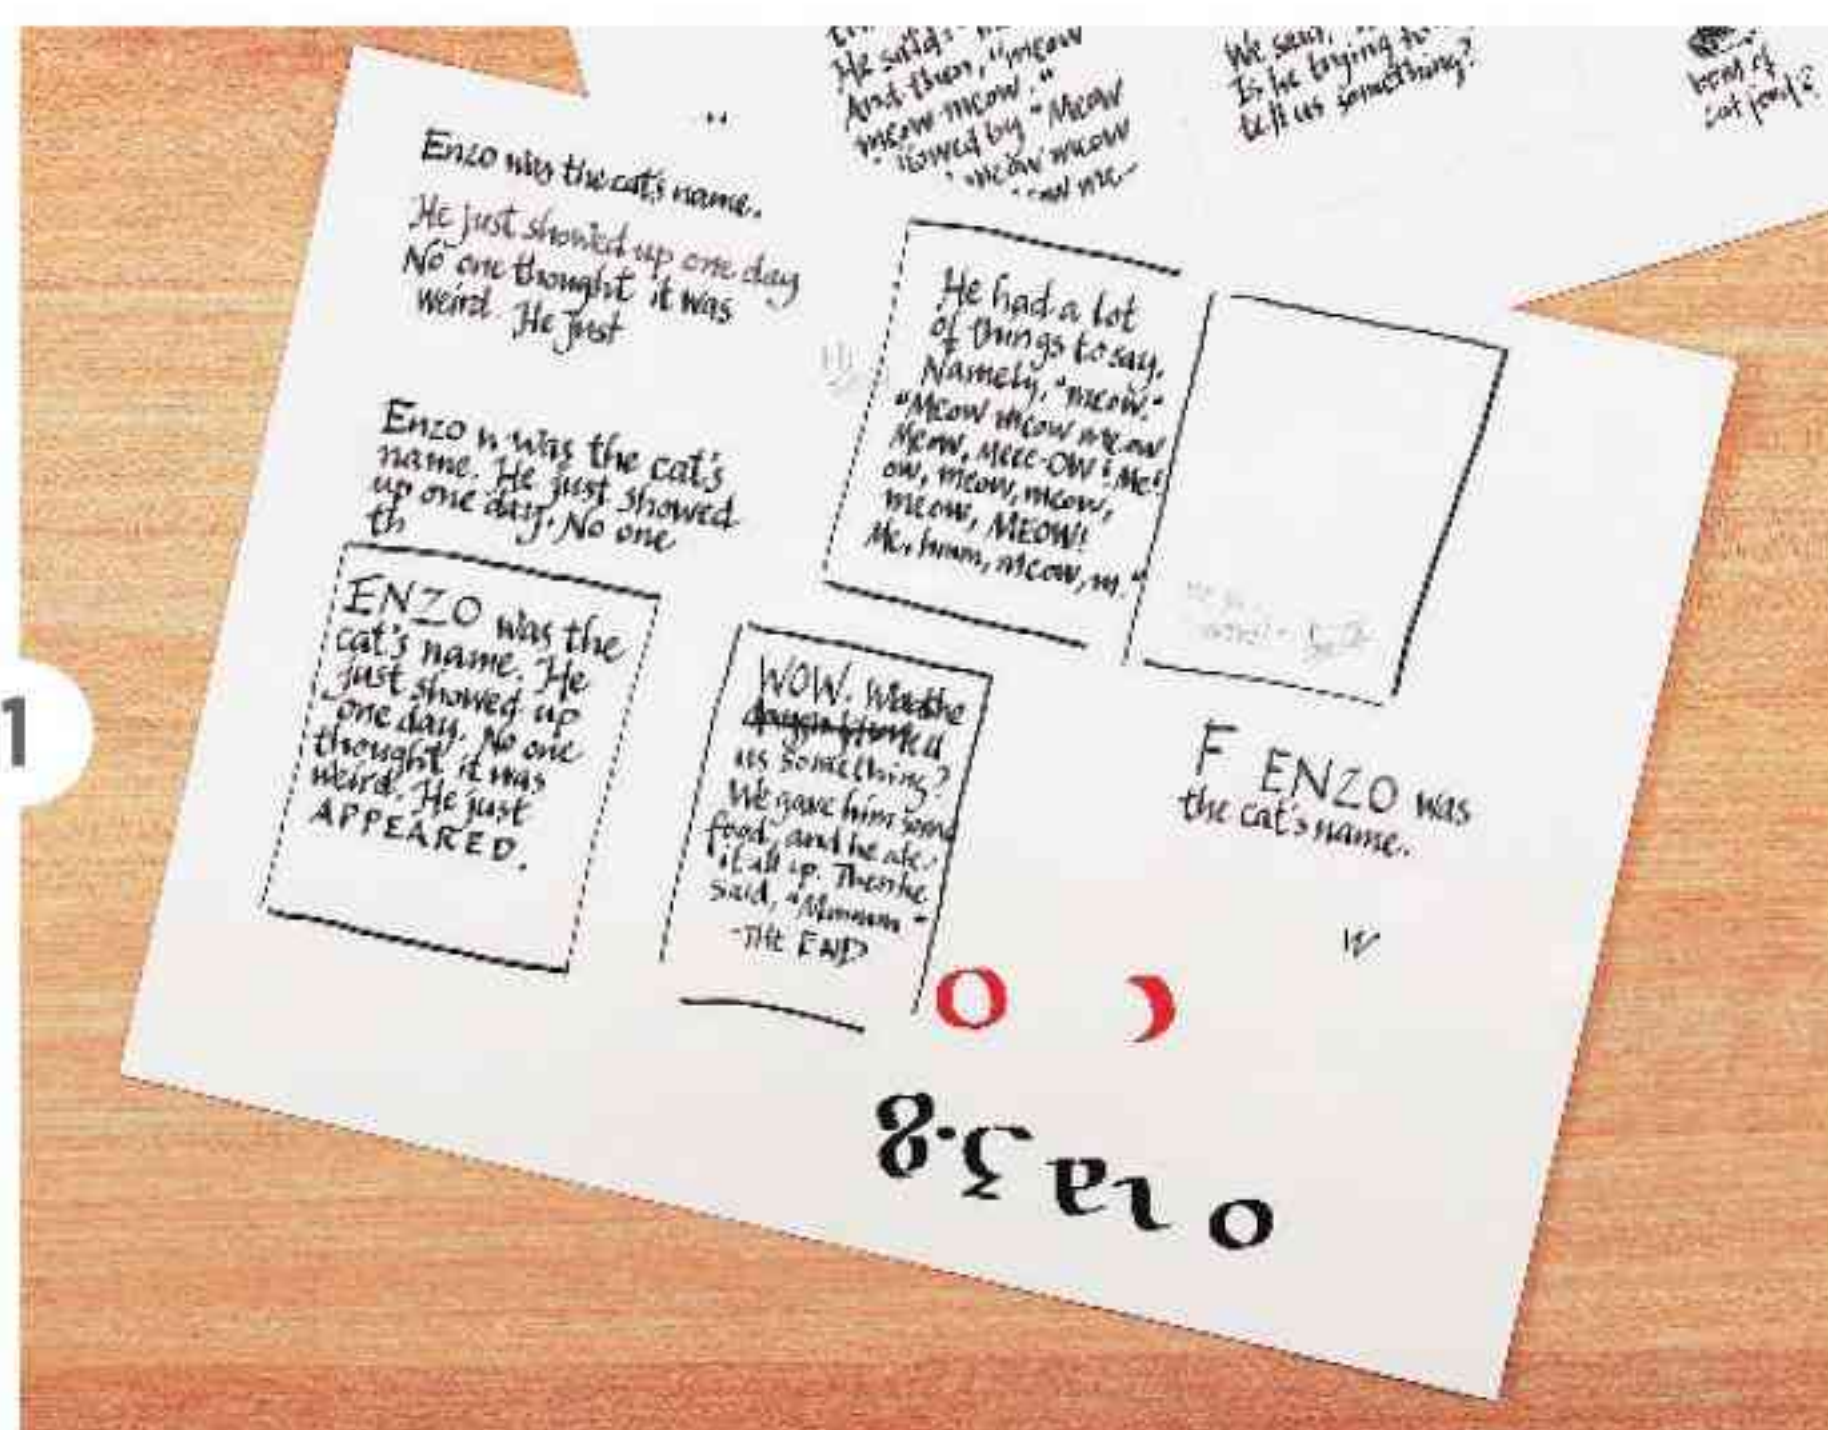 He said
And then, "meow
meow-meow."
lowed by "Meow
meow meow
We said,
Is he trying to
tell us something?
bowl of
cat food?
Enzo was the cat's name.
He just showed up one day
No one thought it was
weird. He just
Enzo w was the cat's
name. He just showed
up one day. No one
th
ENZO was the
cat's name. He
just showed up
one day. No one
thought it was
weird. He just
APPEARED.
He had a lot
of things to say.
Namely, "meow."
"Meow meow meow
Meow, Meee-OW! Me!
ow, meow, meow,
meow, MEOW!
Me, hmm, meow, m."
WOW. Was he
us something?
We gave him some
food, and he ate
it all up. Then he
said, "Mmmmm"
-THE END
F ENZO was
the cat's name.
W
O
1